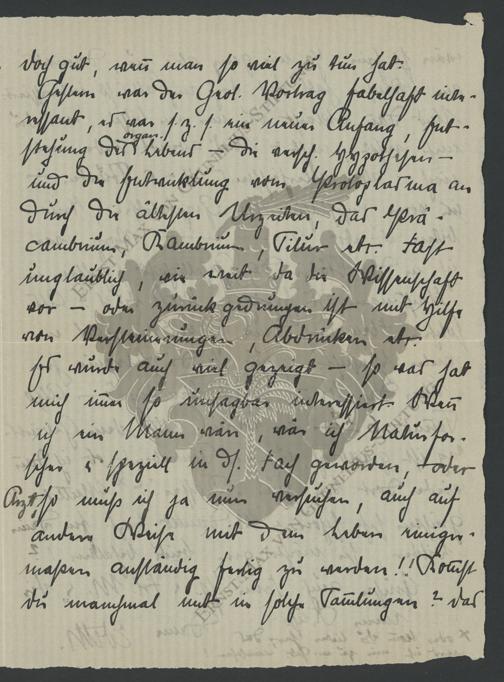 doch gut, wenn man so viel zu tun hat.
Gestern war der Geol. Vortrag fabelhaft inte-
ressant, es war s. z. s. ein neuer Anfang, Ent-
stehung des organ. Lebens – die versch. Hypothesen –
und die Entwicklung vom Protoplasma an
durch die ältesten Urzeiten, das Prä-
cambrium, Kambrium, Silur etc. Fast
unglaublich, wie weit da die Wissenschaft
vor – oder zurück gedrungen ist mit Hilfe
von Versteinerungen, Abdrücken etc.
Es wurde auch viel gezeigt – so was hat
mich immer so unsagbar interessiert. Wenn
ich ein Mann wär, wär ich Naturfor-
scher u. speziell in ds. Fach geworden, oder
Arzt, so muß ich ja nun versuchen, auch auf
andere Weise mit dem Leben einiger-
maßen anständig fertig zu werden!! Kommst
du manchmal mit in solche Sammlungen? das
ERNST MAX